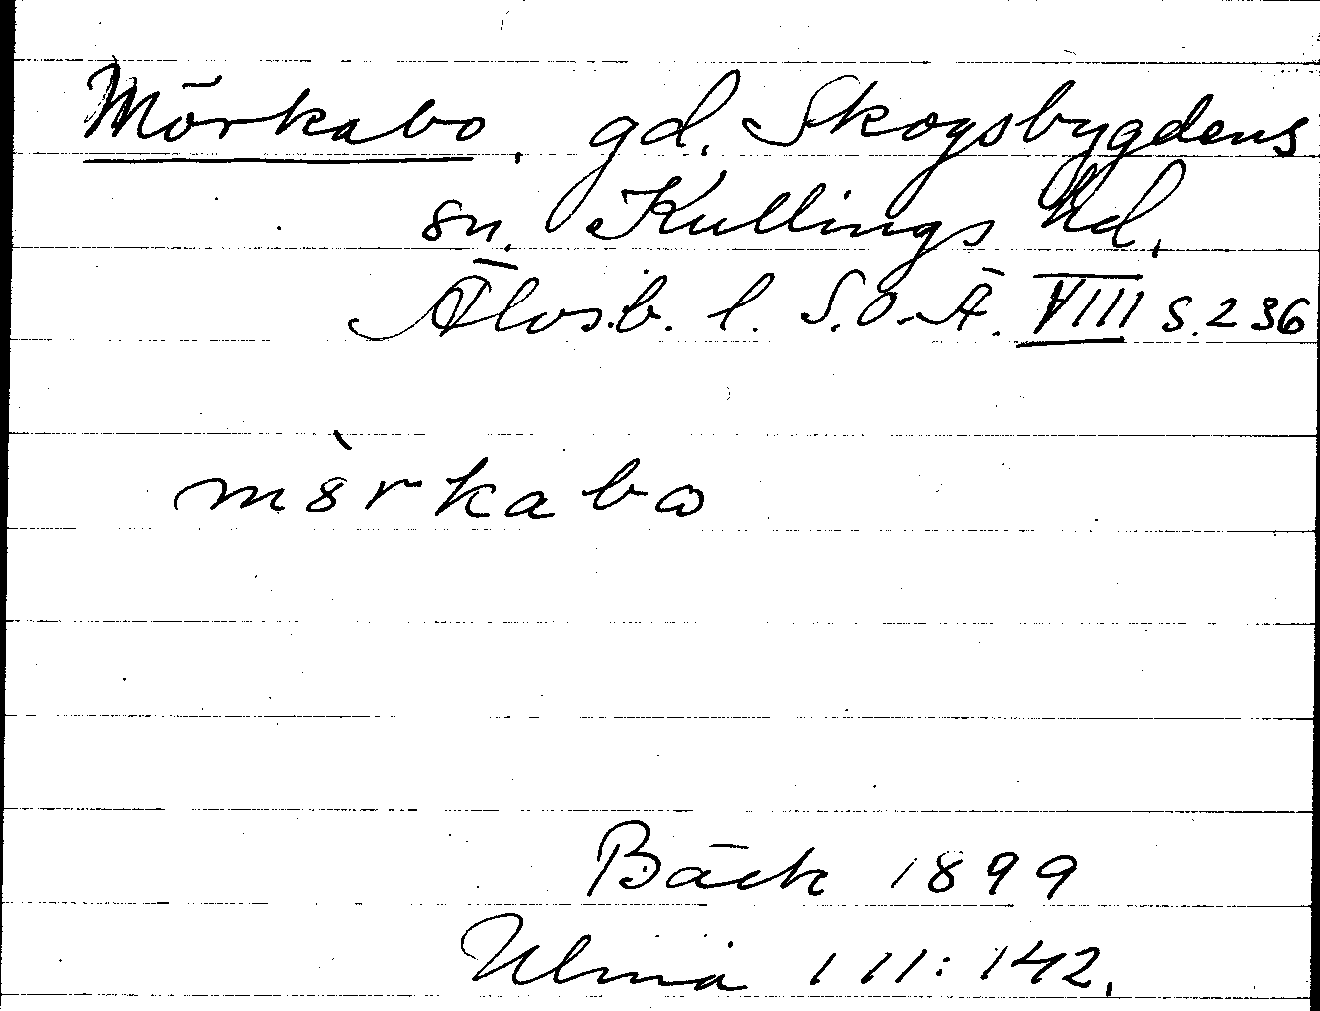 Mörkabo, gd, Skogsbygdens
sn. Kullings hd,
Älvsb. l. S.O.Ä. VIII s. 236
mörkabo
Bäck 1899
Ulma 111:142.